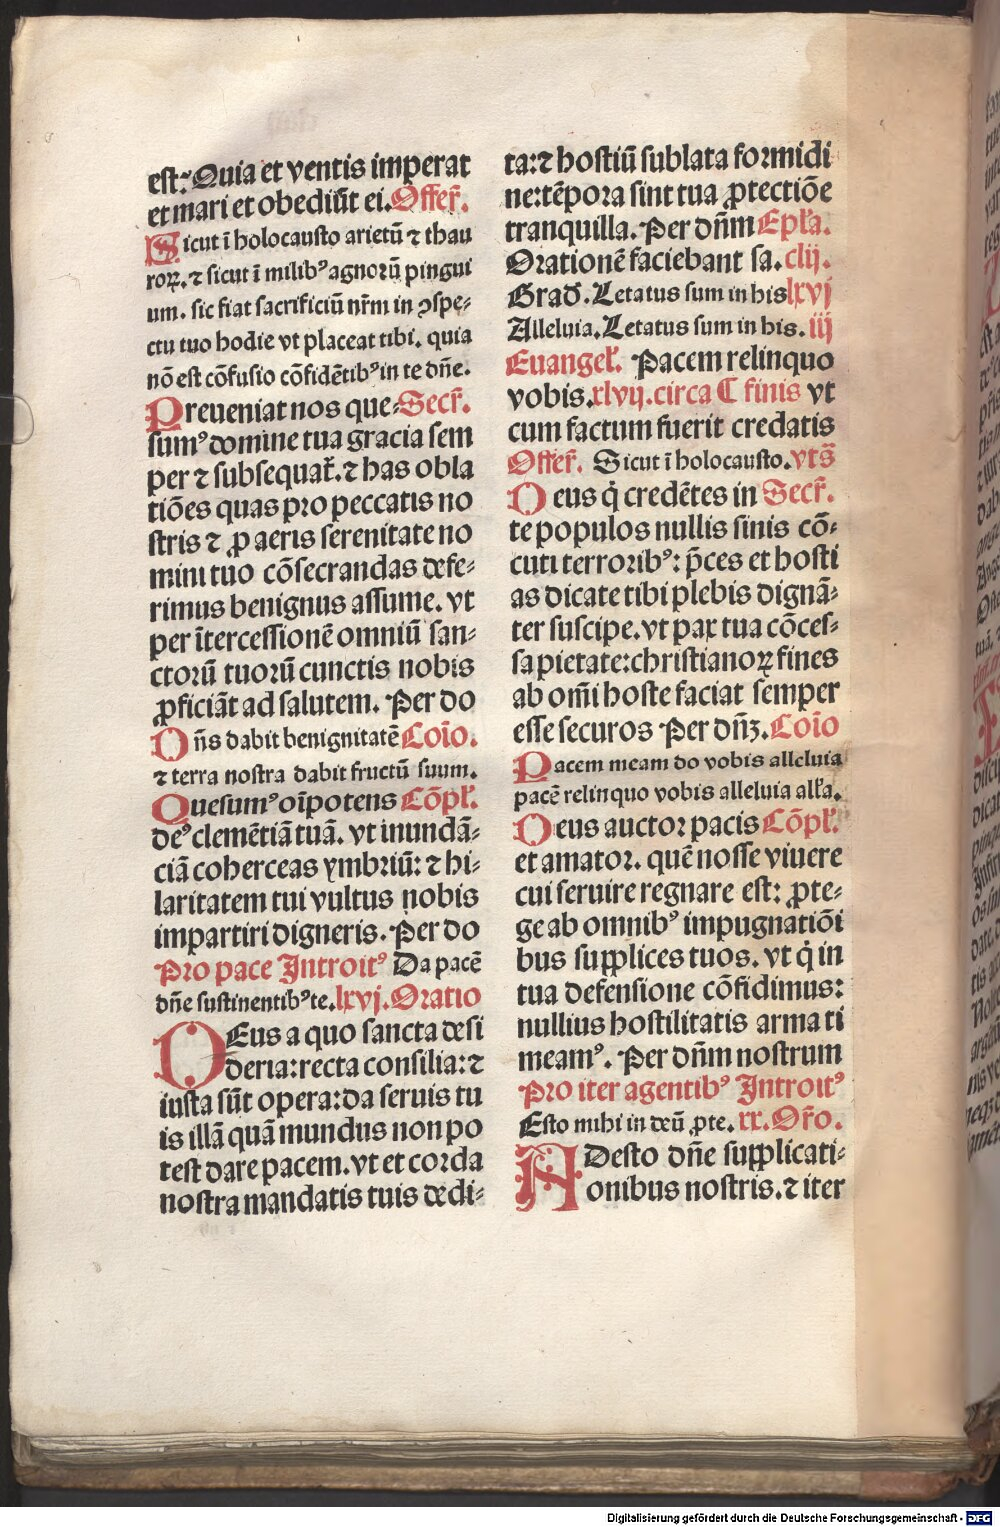 est: Quia et ventis imperat
et mari et obediũt ei. Offer̃.
Sicut ĩ holocausto arietũ ⁊ thau
roꝝ. ⁊ sicut ĩ milibꝰ agnorũ pingui
um. sic fiat sacrificiũ nr̃m in ꝯspe⸗
ctu tuo hodie vt placeat tibi. quia
nõ est cõfusio cõfidẽtibꝰ in te dñe.
Preueniat nos que⸗ Secr̃.
sumꝰ domine tua gracia sem
per ⁊ subsequat̃. ⁊ has obla
tiões quas pro peccatis no
stris ⁊ ꝓ aeris serenitate no
mini tuo cõsecrandas defe⸗
rimus benignus assume. vt
per ĩtercessionẽ omniũ san⸗
ctorũ tuorũ cunctis nobis
ꝓficiãt ad salutem. Per do
Dñs dabit benignitatẽ Coĩo.
⁊ terra nostra dabit fructũ suum.
Quesumꝰ oĩpotens Cõpl̃.
deꝰ clemẽtiã tuã. vt inundã⸗
ciã coherceas ymbriũ: ⁊ hi⸗
laritatem tui vultus nobis
impartiri digneris. Per do
Pro pace Introitꝰ Da pacẽ
dñe sustinentibꝰ te. lxvj. Oratio
DEus a quo sancta desi
deria: recta consilia: ⁊
iusta sũt opera: da seruis tu
is illã quã mundus non po
test dare pacem. vt et corda
nostra mandatis tuis dedi⸗
ta: ⁊ hostiũ sublata formidi
ne: tẽpora sint tua ꝓtectiõe
tranquilla. Per dñm Epl̃a.
Orationẽ faciebant sa. clij.
Grad. Letatus sum in his lxvj
Alleluia. Letatus sum in his. iij
Euangel̃. Pacem relinquo
vobis. xlvij. circa C finis vt
cum factum fuerit credatis
Offer̃. Sicut ĩ holocausto. vts̃
Deus q̇ credẽtes in Secr̃.
te populos nullis sinis cõ⸗
cuti terroribꝰ: p̃ces et hosti
as dicate tibi plebis dignã⸗
ter suscipe. vt pax tua cõces⸗
sa pietate: christianoꝝ fines
ab om̃i hoste faciat semper
esse securos Per dñꝫ. Coĩo
Pacem meam do vobis alleluia
pacẽ relinquo vobis alleluia all̃a.
Deus auctor pacis Cõpl̃.
et amator. quẽ nosse viuere
cui seruire regnare est: ꝓte⸗
ge ab omnibꝰ impugnatiõi
bus supplices tuos. vt q̇ in
tua defensione cõfidimus:
nullius hostilitatis arma ti
meamꝰ. Per dñm nostrum
Pro iter agentibꝰ Introitꝰ
Esto mihi in deũ ꝓte. xx. Or̃o.
ADesto dñe supplicati⸗
onibus nostris. ⁊ iter
Digitalisierung gefördert durch die Deutsche Forschungsgemeinschaft - DFG